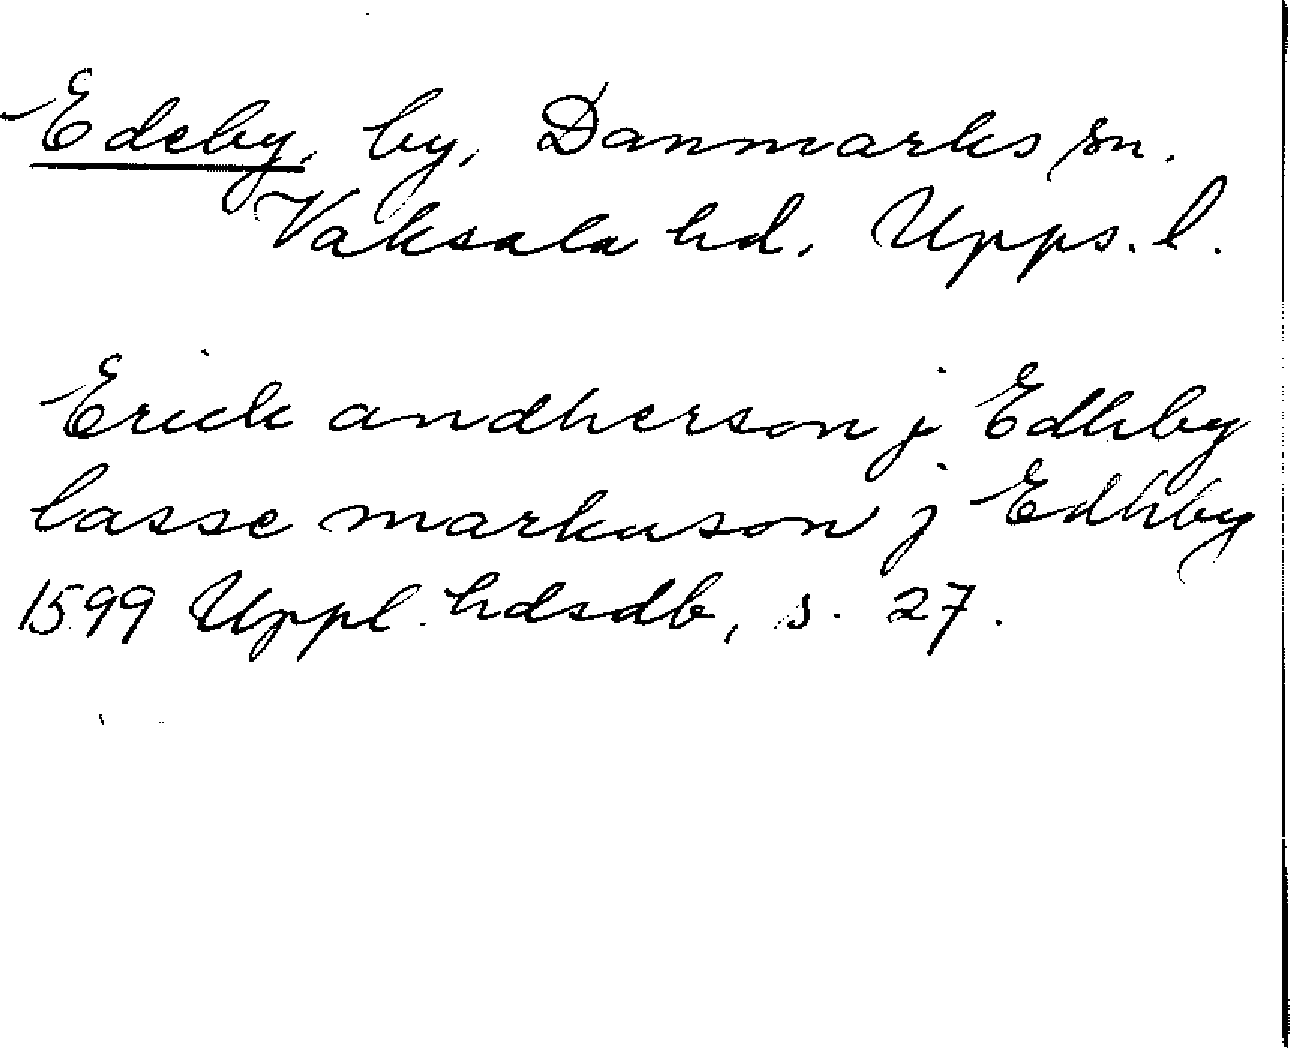 Edeby, by, Danmarks sn.
Vaksala hd. Upps. l.
Erick andherson j Edhby
lasse markuson j Edhby
1599 Uppl. hdsdb, s. 27.